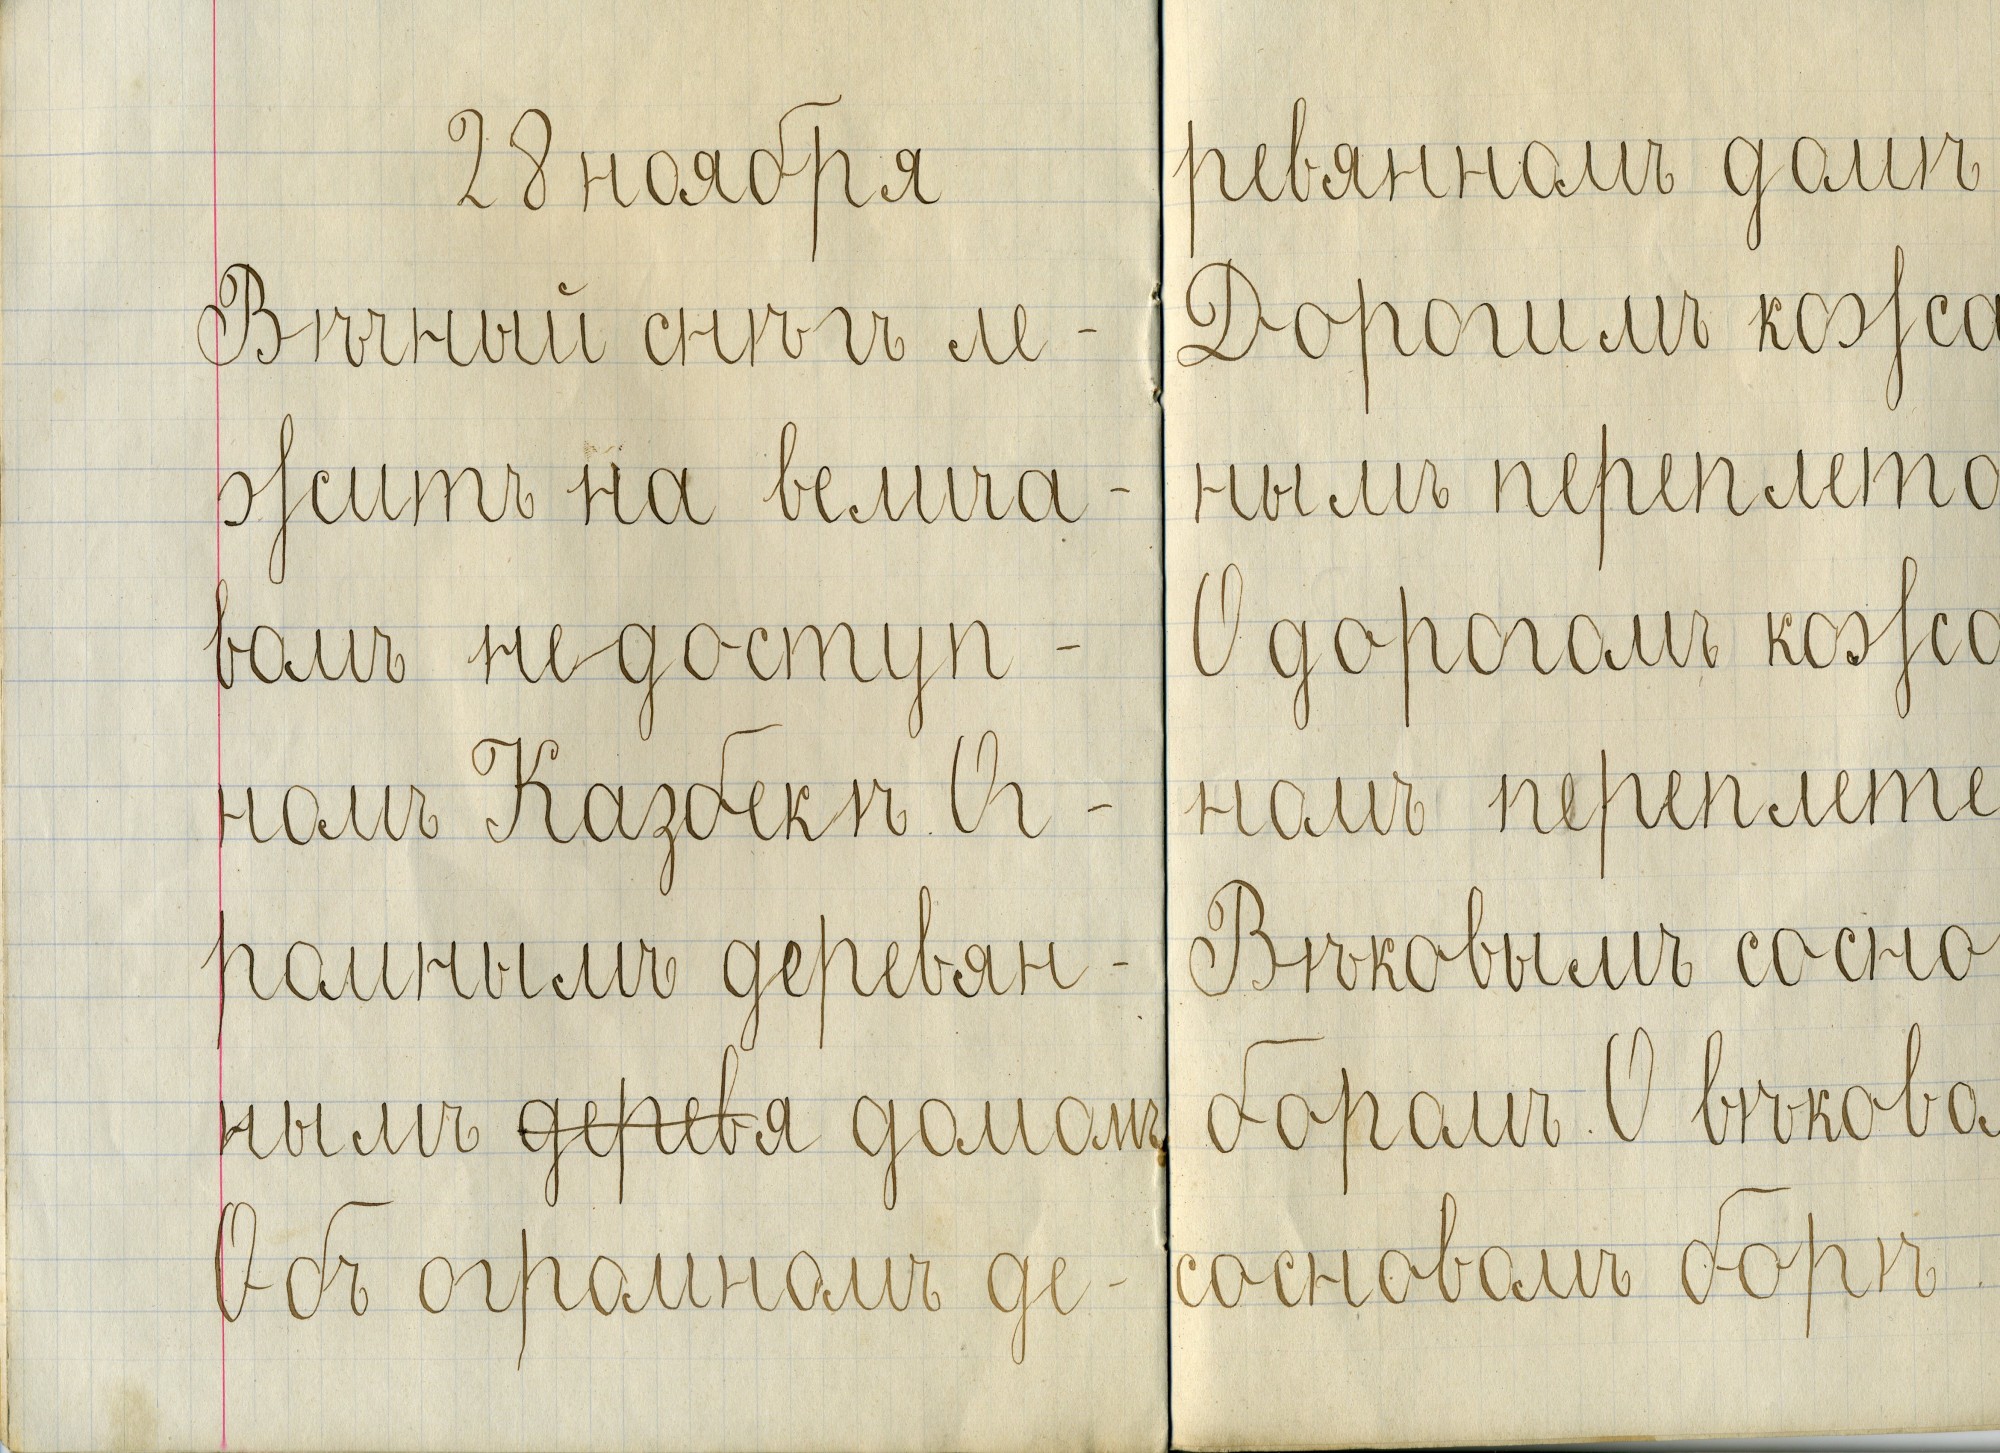 28 ноября
Вѣчный снѣгъ ле-
житъ на велича-
вомъ недоступ-
номъ Казбекѣ. Ог-
ромнымъ деревян-
нымъ деревя домомъ
Объ огромномъ де-
ревянномъ домѣ
Дорогимъ кожа
нымъ переплето
О дорогомъ кожа
номъ переплете
Вѣковымъ сосно
боромъ. О вѣково
сосновомъ борѣ.